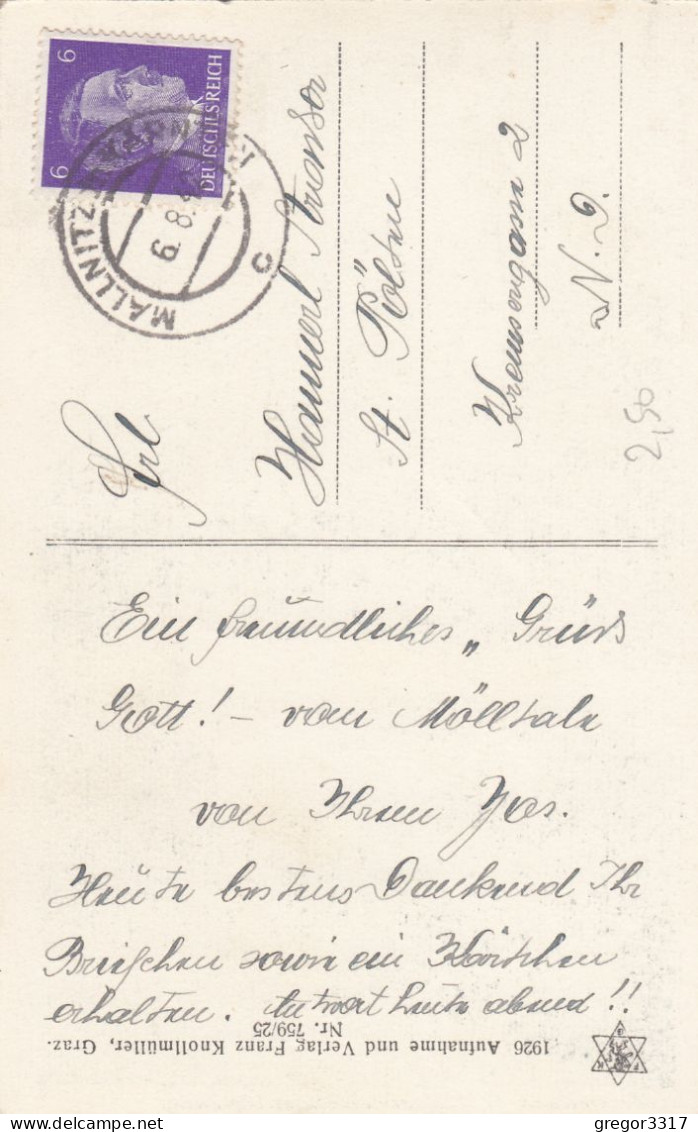 6
6
DEUTSCHES REICH
MALLNITZ
c
6.8.4
Frl
Hannerl
St. Pölten
Kremsergasse 2
N. D.
2,50
Ein freundliches „Grüss
Gott! – vom Mölltale
von Ihren Jos.
Heute bestens Dankend Ihr
Briefchen sowie ein Kärtchen
erhalten. Antwort heute abend!!
1926 Aufnahme und Verlag Franz Knollmüller, Graz.
Nr. 759/25
gregor3317